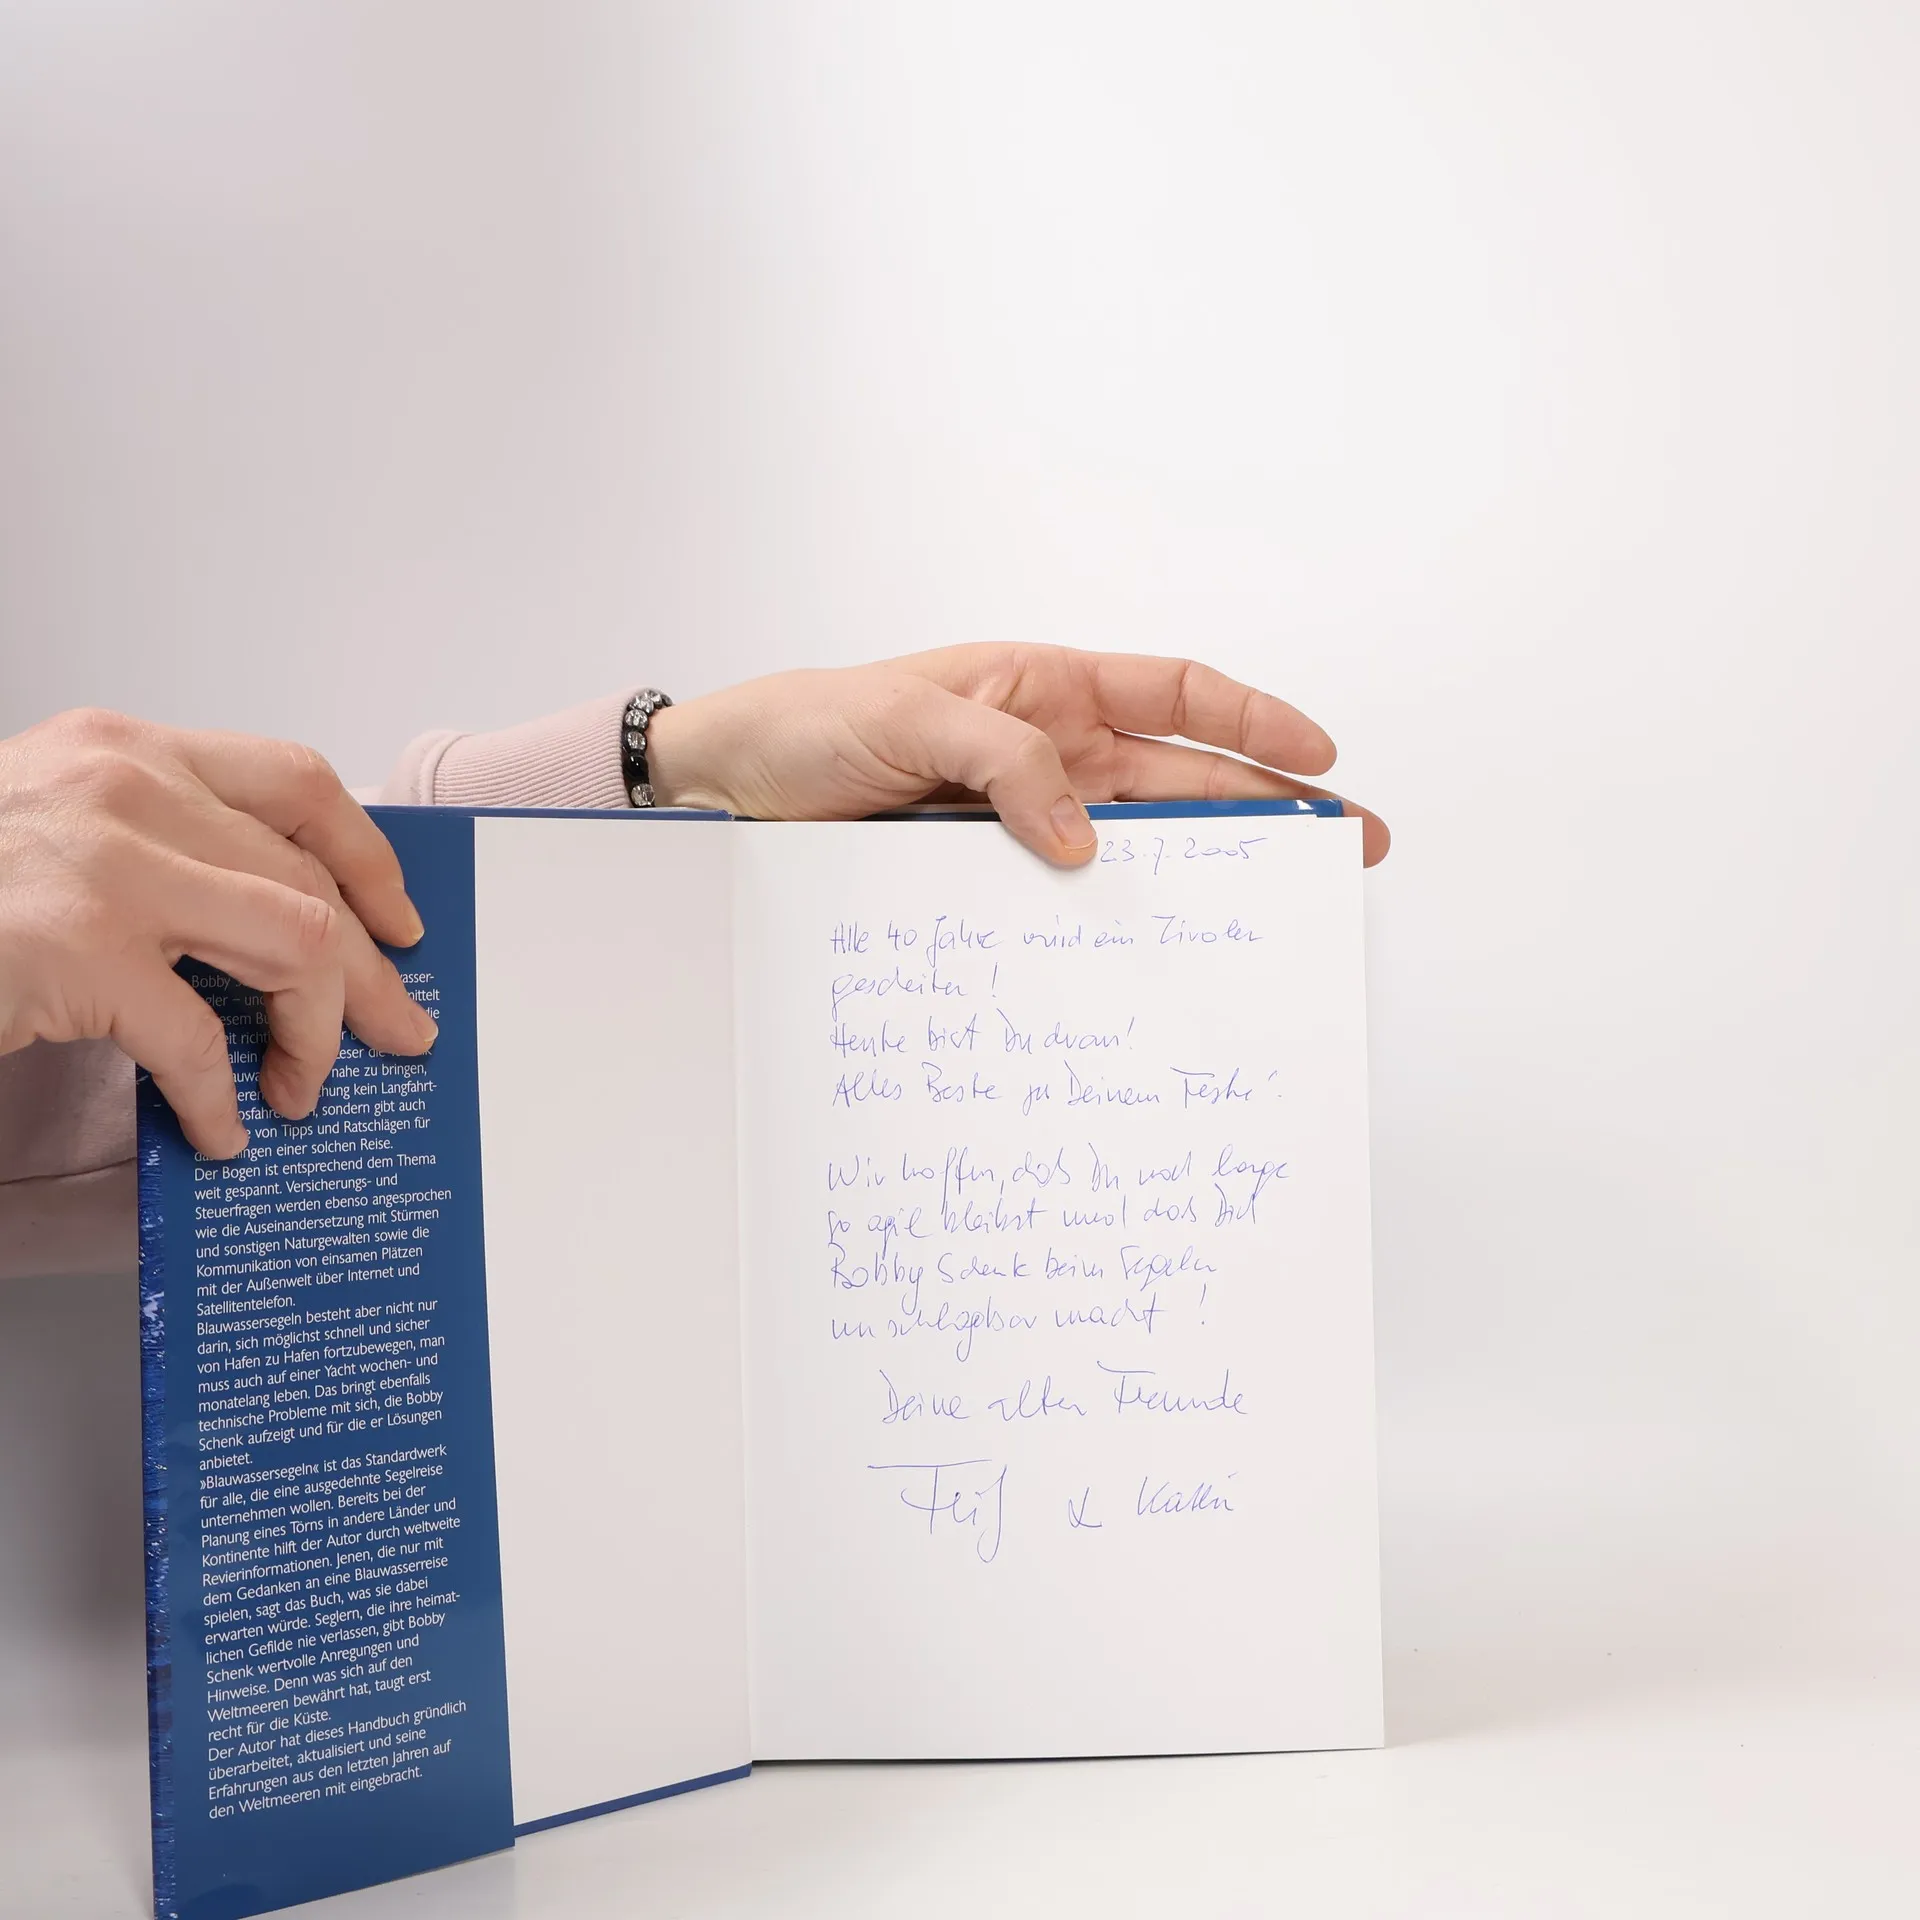 Bobby
asser-
gler – und
mittelt
esem Bu
die
eit richt
allein
eser die
auwa
nahe zu bringen,
eren
chung kein Langfahrt-
osfahre
, sondern gibt auch
e von Tipps und Ratschlägen für
das
lingen einer solchen Reise.
Der Bogen ist entsprechend dem Thema
weit gespannt. Versicherungs- und
Steuerfragen werden ebenso angesprochen
wie die Auseinandersetzung mit Stürmen
und sonstigen Naturgewalten sowie die
Kommunikation von einsamen Plätzen
mit der Außenwelt über Internet und
Satellitentelefon.
Blauwassersegeln besteht aber nicht nur
darin, sich möglichst schnell und sicher
von Hafen zu Hafen fortzubewegen, man
muss auch auf einer Yacht wochen- und
monatelang leben. Das bringt ebenfalls
technische Probleme mit sich, die Bobby
Schenk aufzeigt und für die er Lösungen
anbietet.
»Blauwassersegeln« ist das Standardwerk
für alle, die eine ausgedehnte Segelreise
unternehmen wollen. Bereits bei der
Planung eines Törns in andere Länder und
Kontinente hilft der Autor durch weltweite
Revierinformationen. Jenen, die nur mit
dem Gedanken an eine Blauwasserreise
spielen, sagt das Buch, was sie dabei
erwarten würde. Seglern, die ihre heimat-
lichen Gefilde nie verlassen, gibt Bobby
Schenk wertvolle Anregungen und
Hinweise. Denn was sich auf den
Weltmeeren bewährt hat, taugt erst
recht für die Küste.
Der Autor hat dieses Handbuch gründlich
überarbeitet, aktualisiert und seine
Erfahrungen aus den letzten Jahren auf
den Weltmeeren mit eingebracht.
23.7.2005
Alle 40 Jahre wird ein Tiroler
gescheiter!
Heute bist Du dran!
Alles Beste zu Deinem Feste!
Wir hoffen, daß Du noch lange
so agil bleibst und daß Dich
Bobby Schenk beim Segeln
unschlagbar macht!
Deine alten Freunde
& Katrin